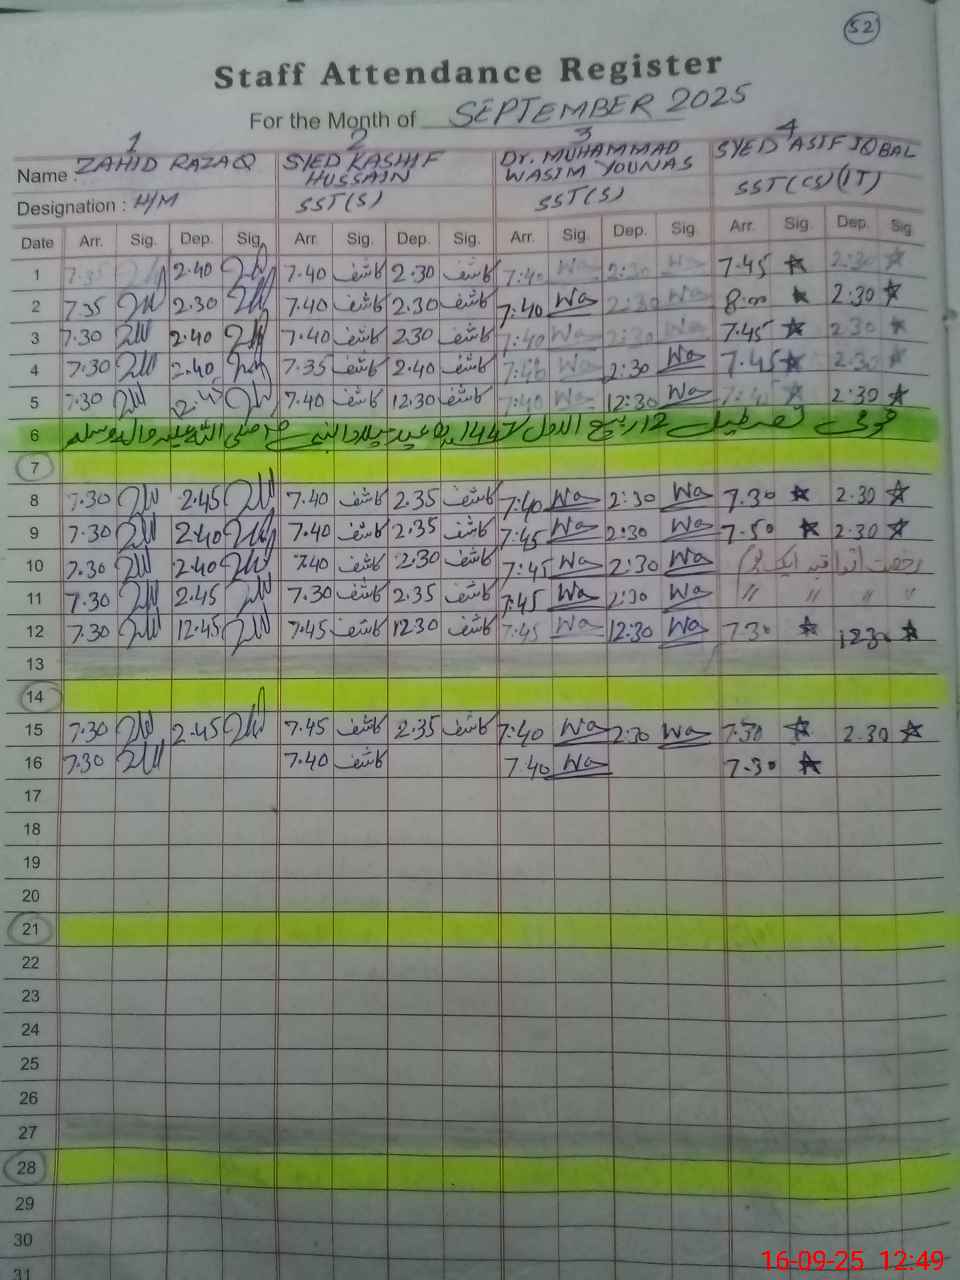 52
Staff Attendance Register
For the Month of SEPTEMBER 2025
1 2 3 4
Name : ZAHID RAZAQ SYED KASHIF HUSSAIN Dr. MUHAMMAD WASIM YOUNAS SYED ASIF IQBAL
Designation : H/M SST(S) SST(S) SST(CS)(IT)
Date Arr. Sig. Dep. Sig. Arr. Sig. Dep. Sig. Arr. Sig. Dep. Sig. Arr. Sig. Dep. Sig.
1 7.35 2.40 7.40 کاشف 2.30 کاشف 7:40 Wa 2:30 Wa 7.45 2:30
2 7.35 2.30 7.40 کاشف 2.30 کاشف 7:40 Wa 2:30 Wa 8.00 2:30
3 7.30 2.40 7.40 کاشف 2.30 کاشف 7:40 Wa 2:30 Wa 7.45 2.30
4 7.30 2.40 7.35 کاشف 2.40 کاشف 7:40 Wa 2:30 Wa 7.45 2.30
5 7.30 12.45 7.40 کاشف 12.30 کاشف 7:40 Wa 12:30 Wa 7:45 2:30
6 تعطیل 12 ربیع الاول 1447ھ عید میلاد النبی صلی اللہ علیہ والہ وسلم
7
8 7.30 2.45 7.40 کاشف 2.35 کاشف 7:40 Wa 2:30 Wa 7.30 2.30
9 7.30 2.40 7.40 کاشف 2.35 کاشف 7:45 Wa 2:30 Wa 7.50 2.30
10 7.30 2.40 7.40 کاشف 2.30 کاشف 7:45 Wa 2:30 Wa رخصت اتفاقیہ ایک
11 7.30 2.45 7.30 کاشف 2.35 کاشف 7:45 Wa 2:30 Wa " " " "
12 7.30 12.45 7.45 کاشف 12.30 کاشف 7:45 Wa 12:30 Wa 7.30 12.30
13
14
15 7.30 2.45 7.45 کاشف 2.35 کاشف 7:40 Wa 2:30 Wa 7.30 2.30
16 7.30 7.40 کاشف 7:40 Wa 7.30
17
18
19
20
21
22
23
24
25
26
27
28
29
30
31
16-09-25 12:49